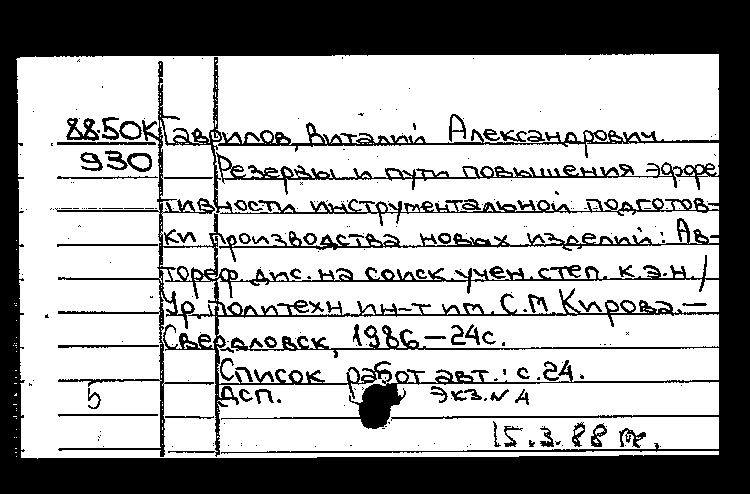 8850К Гаврилов, Виталий Александрович.
930 Резервы и пути повышения эффек
тивности инструментальной подготов-
ки производства новых изделий: Ав-
тореф. дис. на соиск. учен. степ. к.э.н. /
Ур. политехн. ин-т им. С.М. Кирова.—
Свердловск, 1986.—24с.
Список работ авт.: с.24.
5 ДСП. Экз. N
15.3.88